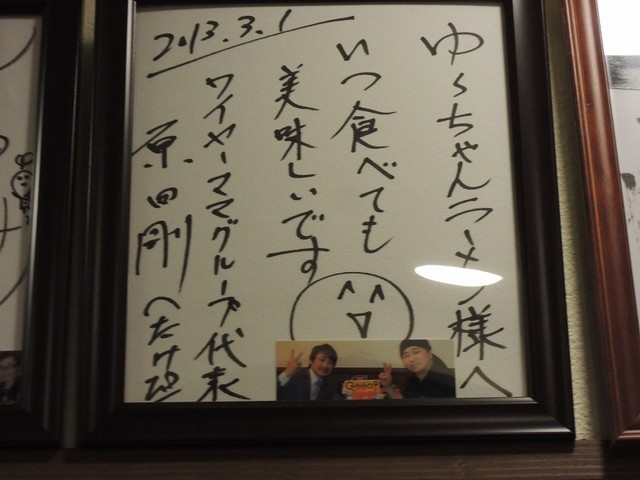 ゆうちゃんラーメン様へ
いつ食べても
美味しいです
ワイヤーママグループ代表
原田剛
2013.3.1